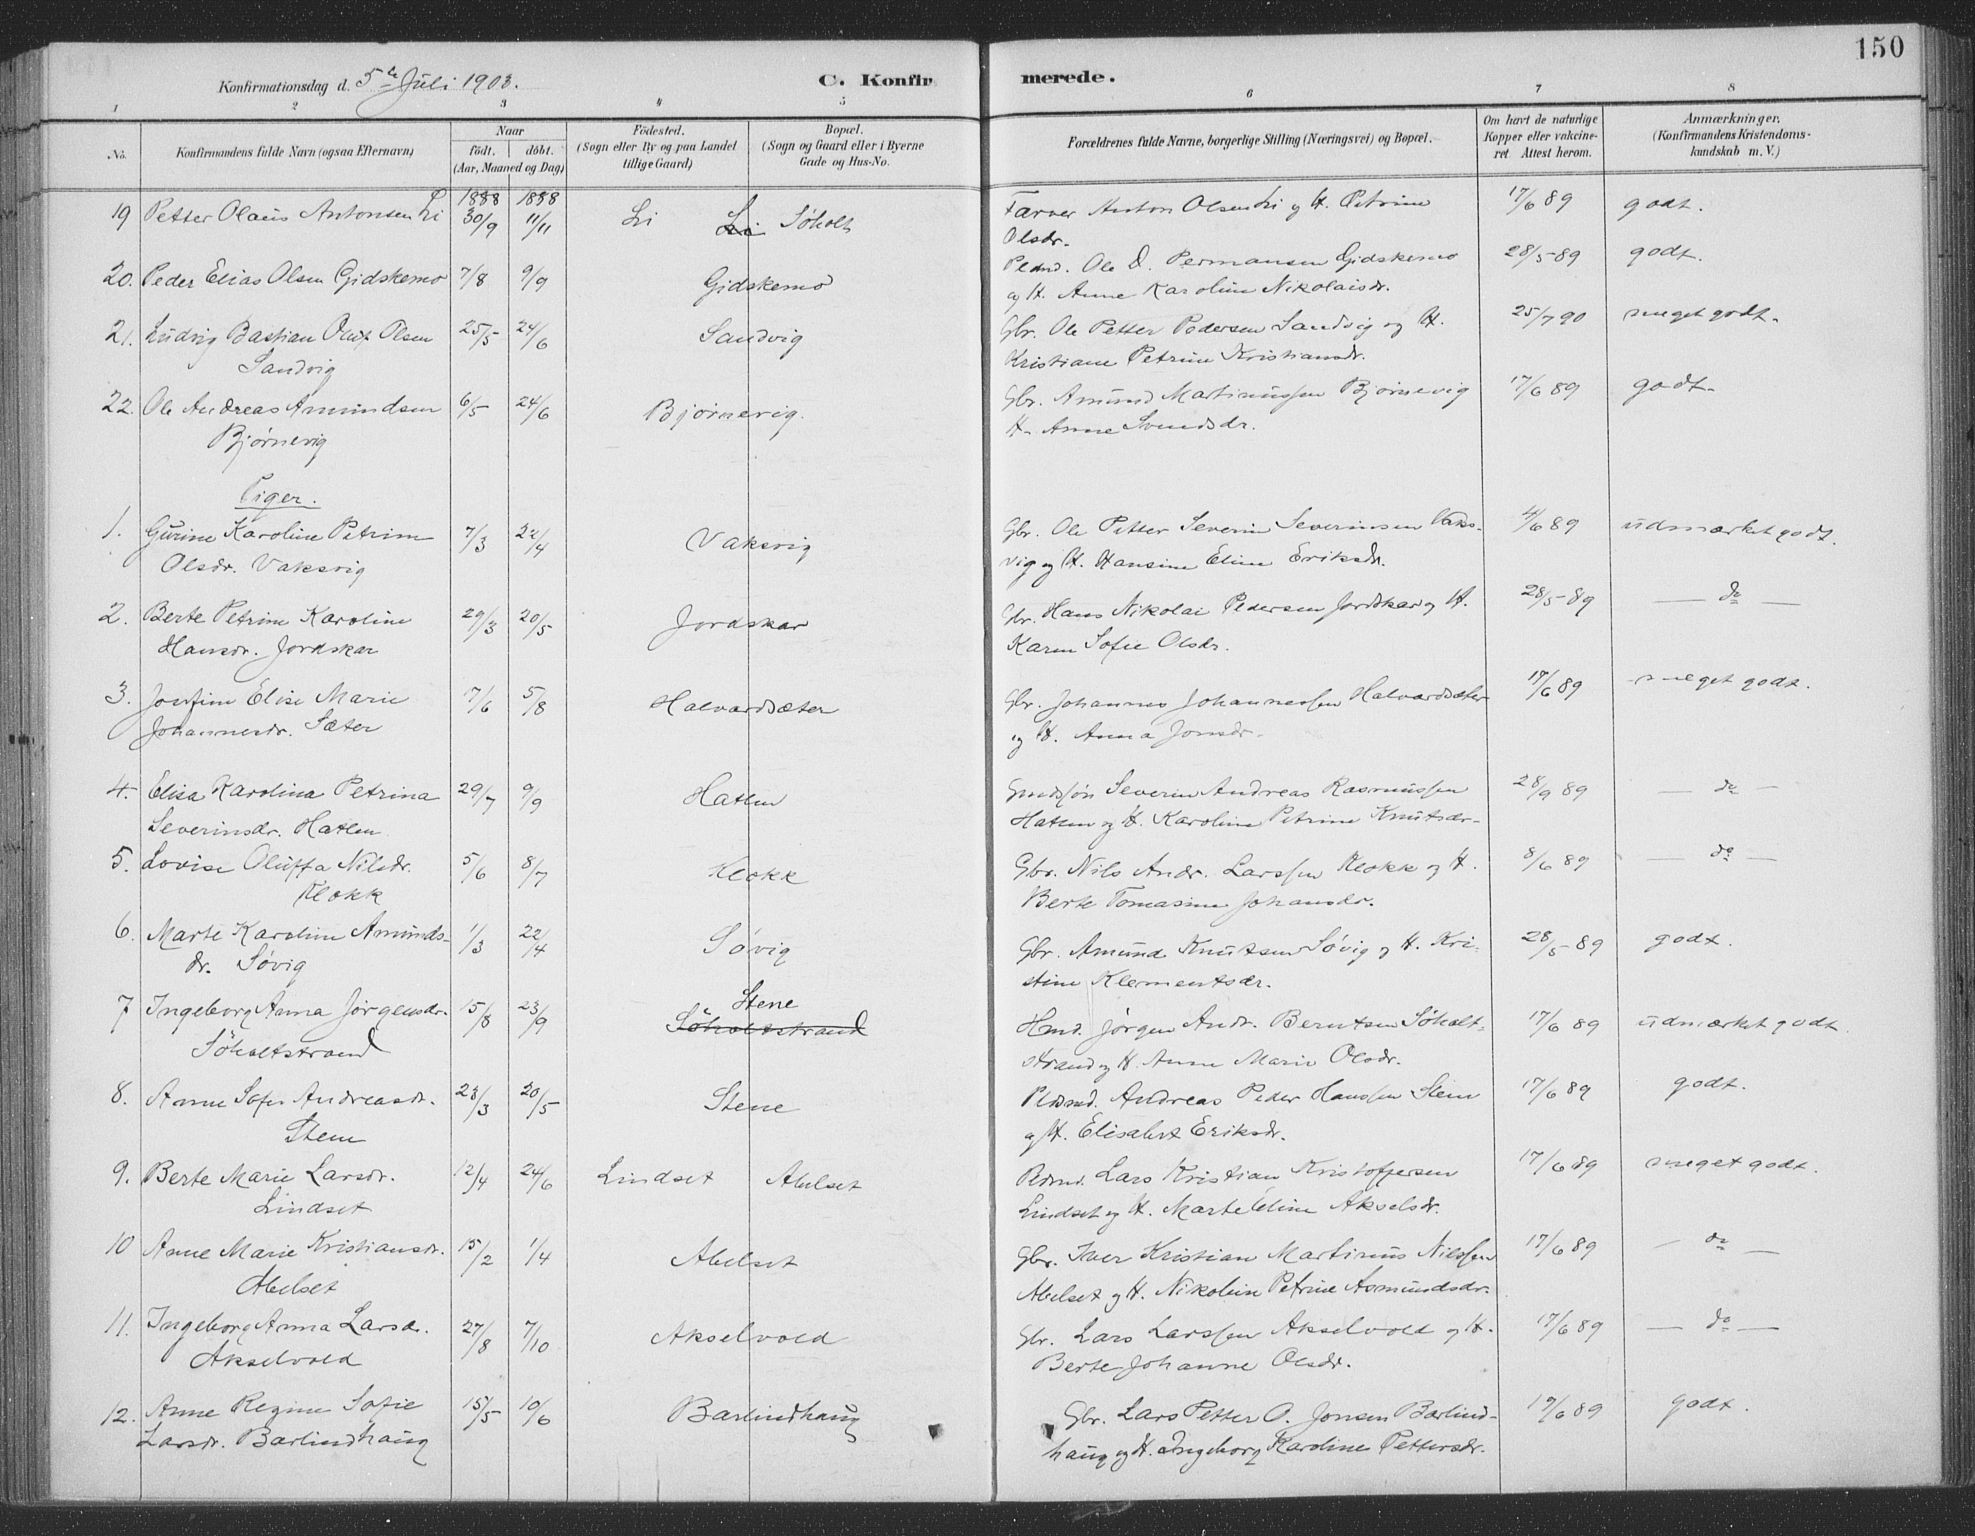 150
Konfirmationsdag d. 5te Juli 1903.
C. Konfirmerede.
1 2 3 4 5 6 7 8
No. Konfirmandens fulde Navn (ogsaa Efternavn)
Naar
födt. döbt.
(Aar, Maaned og Dag)
Födested.
(Sogn eller By og paa Landet
tillige Gaard)
Bopæl.
(Sogn og Gaard eller i Byerne
Gade og Hus-No.
Forældrenes fulde Navne, borgerlige Stilling (Næringsvei) og Bopæl.
Om havt de naturlige
Kopper eller vakcine-
ret Attest herom.
Anmærkninger.
(Konfirmandens Kristendoms-
kundskab m. V.)
1888 1888
19 Petter Olaus Antonsen Li 30/9 11/11 Li Li Søholt Farver Anton Olsen Li og H. Petrine 17/6 89 godt.
Olsdr.
20. Peder Elias Olsen Gidskemo 7/8 9/9 Gidskemo Pldmd. Ole D. Permansen Gidskemo 28/5 89 godt.
og H. Anne Karoline Nikolaisdr.
21. Ludvig Bastian Oluf Olsen 25/5 24/6 Sandvig Gbr. Ole Petter Pedersen Sandvig og H. 25/7 90 meget godt.
Sandvig Kristiane Petrine Kristiansdr.
22. Ole Andreas Amundsen 6/5 24/6 Bjørnevig. Gbr. Amund Martinussen Bjørnevig 17/6 89 godt.
Bjørnevig H. Anne Svendsdr.
Piger.
1. Gurine Karoline Petrine 7/3 22/4 Vaksvig Gbr. Ole Petter Severin Severinsen Vaks- 4/6 89 udmærket godt.
Olsdr. Vaksvig vig og H. Hansine Eline Eriksdr.
2. Berte Petrine Karoline 29/3 20/5 Jordskar Gbr. Hans Nikolai Pedersen Jordskar og H. 28/5 89 — do —
Hansdr. Jordskar Karen Sofie Olsdr.
3. Josefine Elise Marie 7/6 5/8 Halvardsæter Gbr. Johannes Johannessen Halvardsæter 17/6 89 meget godt.
Johannesdr. Sæter og H. Anna Jonsdr.
4. Elisa Karolina Petrina 29/7 9/9 Hatlen Severin Andreas Rasmussen 28/9 89 — do —
Severinsdr. Hatlen Hatlen og H. Karoline Petrine Knutsdr.
5. Lovise Oluffa Nilsdr. 5/6 8/7 Klokk Gbr. Nils Andr. Larssen Klokk og H. 8/6 89 — do —
Klokk Berte Tomasine Johansdr.
6. Marte Karoline Amunds- 1/3 22/4 Søvig Gbr. Amund Knutsen Søvig og H. Kri- 28/5 89 godt.
dr. Søvig stine Klementsdr.
7 Ingeborg Anna Jørgensdr. 15/8 23/9 Stene Hmd. Jørgen Andr. Berntsen Søholt- 17/6 89 udmærket godt
Søholtstrand Søholtstrand strand og H. Anne Marie Olsdr.
8. Anne Sofie Andreasdr. 23/3 20/5 Stene Pldsmd. Andreas Peder Hanssen Stene 17/6 89 godt.
Stene og H. Elisabet Eriksdr.
9. Berte Marie Larsdr. 12/4 24/6 Lindset Abelset Pldsmd. Lars Kristian Kristoffersen 17/6 89 meget godt.
Lindset Lindset og H. Marte Eline Akselsdr.
10 Anne Marie Kristiansdr. 15/2 1/4 Abelset Gbr. Iver Kristian Martinus Nilssen 17/6 89 — do —
Abelset Abelset og H. Nikoline Petrine Asmundsdr.
11. Ingeborg Anna Larsdr. 27/8 7/10 Akselvold Gbr. Lars Larssen Akselvold og H. 17/6 89 — do —
Akselvold Berte Johanne Olsdr.
12. Anne Regine Sofie 15/5 10/6 Barlindhaug Gbr. Lars Petter O. Jonsen Barlind- 17/6 89 godt.
Larsdr. Barlindhaug haug og H. Ingeborg Karoline Pettersdr.